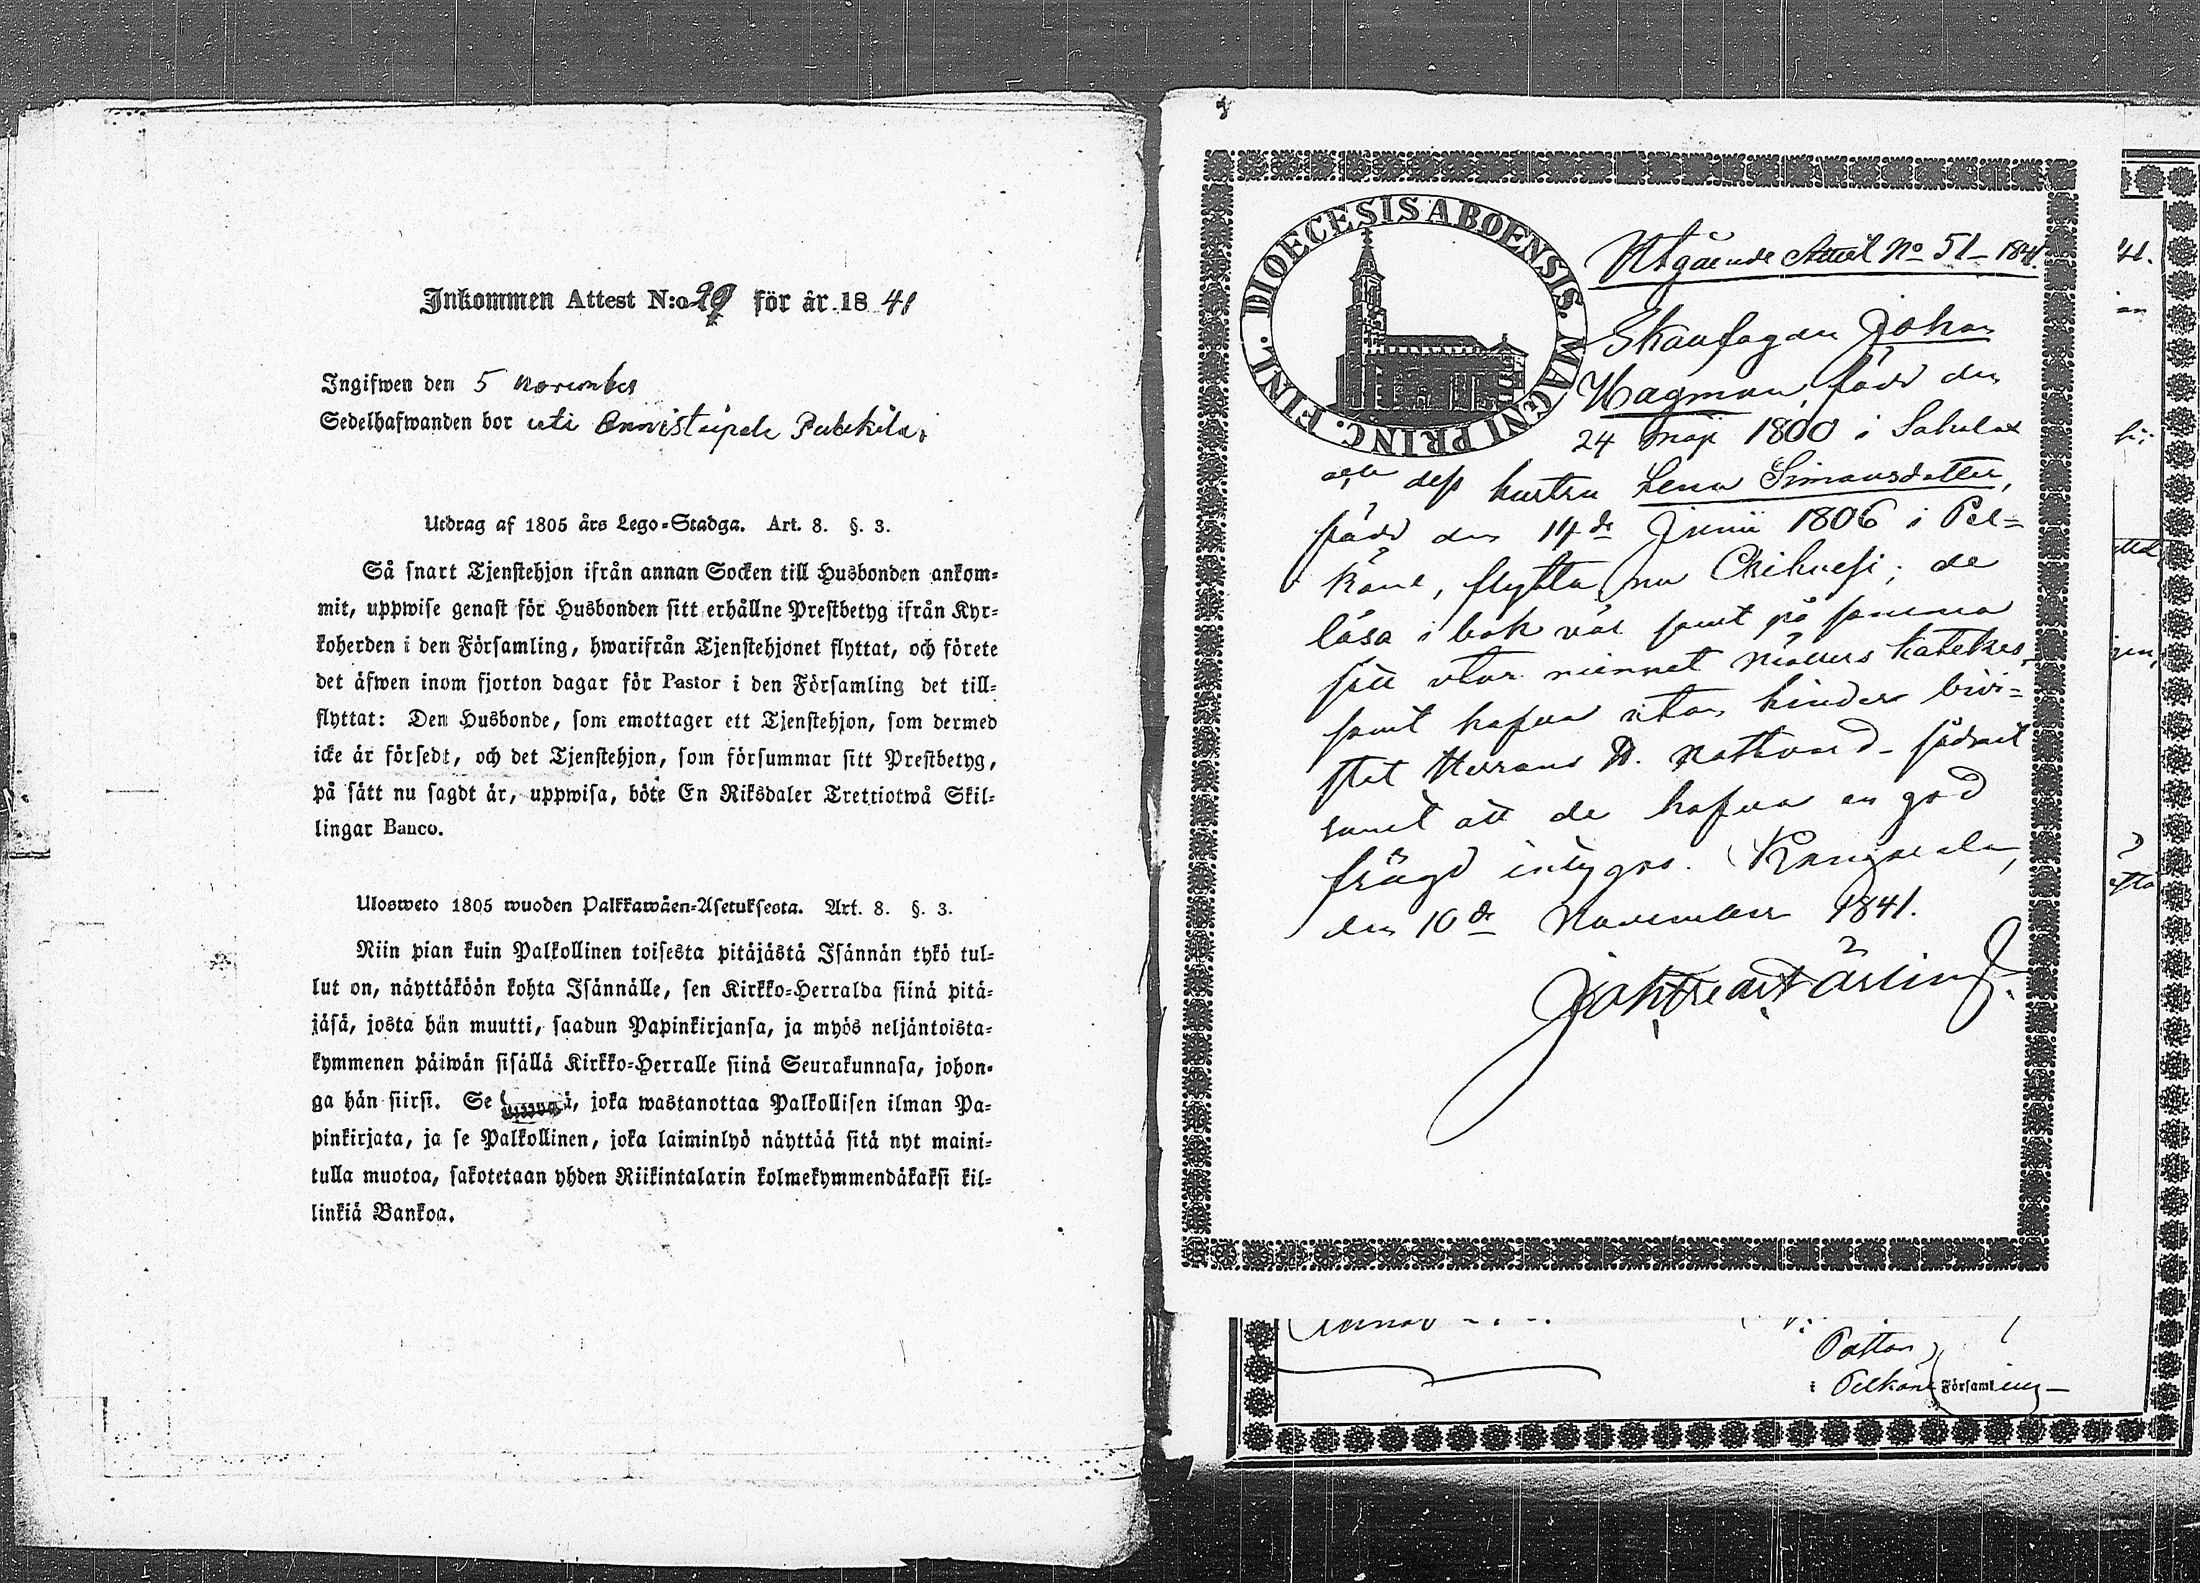 Inkommen Attest N:o 29 för år 1841
Ingifwen den 5 november
Sedelhafwanden bor uti
Utdrag af 1805 års Lego-Stadga. Art. 8. §. 3.
Så snart Tjenstehjon ifrån annan Socken till Husbonden ankom-
mit, uppwise genast för Husbonden sitt erhållne Prestbetyg ifrån Kyr-
koherden i den Församling, hwarifrån Tjenstehjonet flyttat, och förete
det äfwen inom fjorton dagar för Pastor i den Församling det till-
flyttat: Den Husbonde, som emottager ett Tjenstehjon, som dermed
icke är försedt, och det Tjenstehjon, som försummar sitt Prestbetyg,
på sätt nu sagdt är, uppwisa, böte En Riksdaler Trettiotwå Skil-
lingar Banco.
Ulosweto 1805 wuoden Palkkawäen-Asetuksesta. Art. 8. §. 3.
Niin pian kuin Palkollinen toisesta pitäjästä Isännän tykö tul-
lut on, näyttäköön kohta Isännälle, sen Kirkko-Herralda siinä pitä-
jäsä, josta hän muutti, saadun Papinkirjansa, ja myös neljäntoista-
kymmenen päiwän sisällä Kirkko-Herralle siinä Seurakunnasa, johon-
ga hän siirsi. Se joka wastanottaa Palkollisen ilman Pa-
pinkirjata, ja se Palkollinen, joka laiminlyö näyttää sitä nyt maini-
tulla muotoa, sakotetaan yhden Riikintalarin kolmekymmendäkaksi kil-
linkiä Bankoa.
DIOECESIS ABOENSIS. MAGNI PRINC. FINL.
Utgående Attest No 51 - 1841.
Skaufogden Johan
Hagman, född den
24 maji 1800 i Sahalax
och dess hustru Lena Simonsdotter,
född den 14de Junii 1806 i Pel=
käne, flytta nu Orihvesi; de
läsa i bok väl samt på samma
sätt utur minnet katekes,
samt hafva utan hinder bivi=
stet Herrans H. Nattvard
samt att de hafva en god
frägd intygas. Kangasala,
den 10de November 1841.
Pastor
i Pelkäne Församling